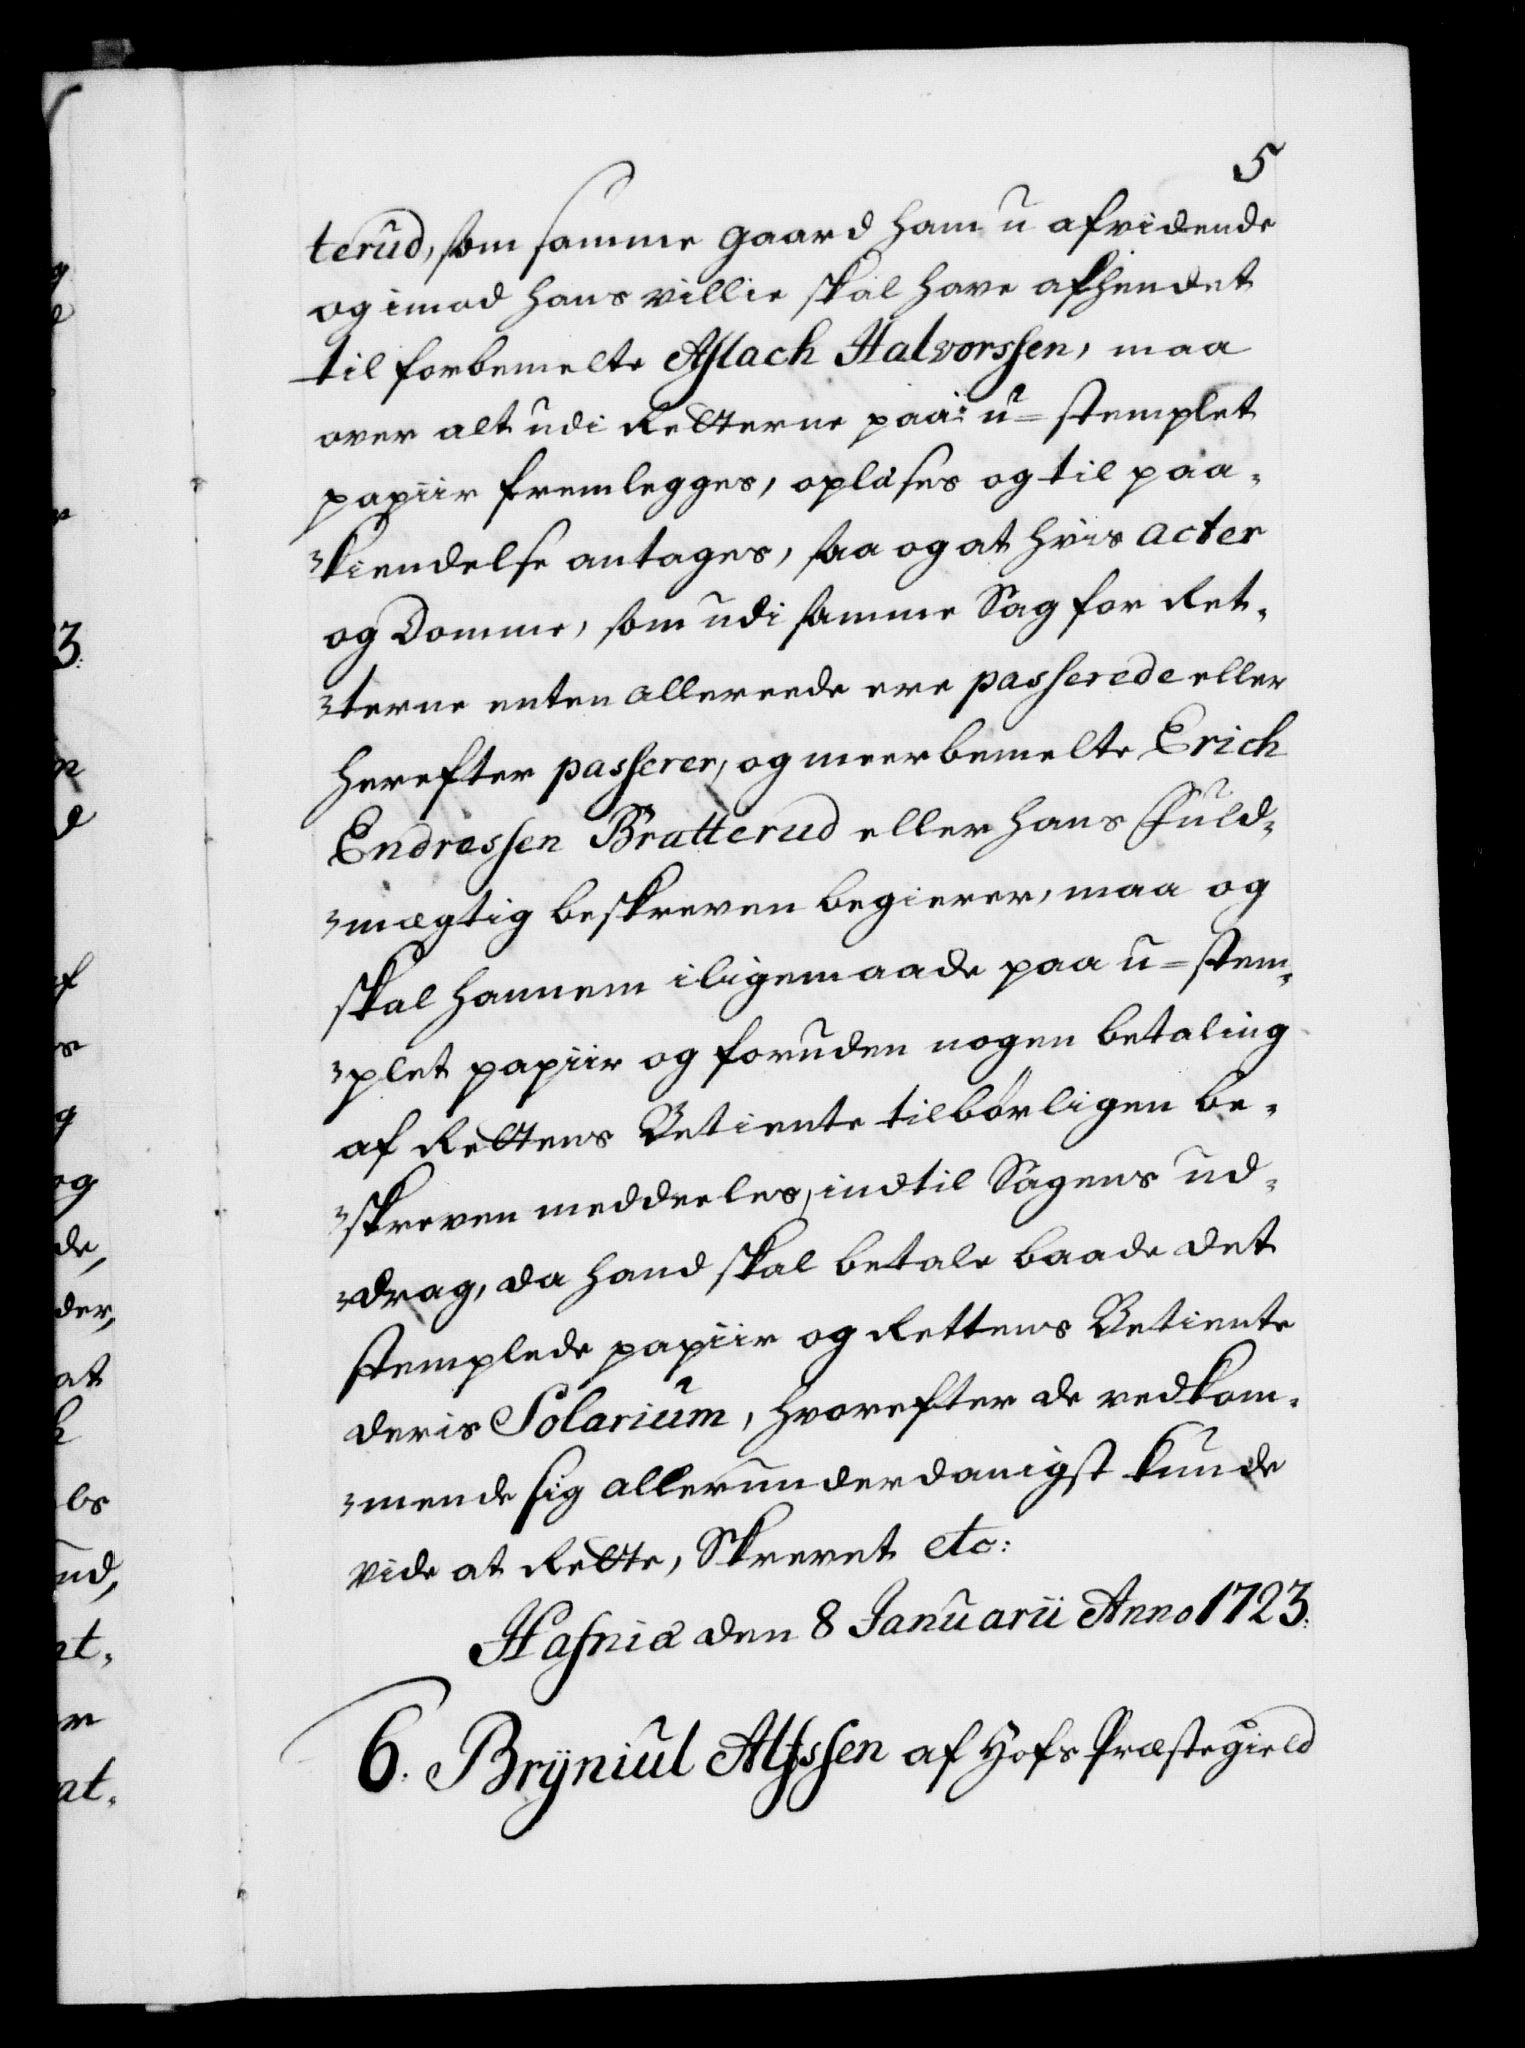 5
terud, som samme gaard ham u afvidende
og imod hans villie skal have afhendet
til forbemelte Aslach Halvorssen, maa
over alt udi Retterne paa u=stemplet
papiir fremlegges, oplæses og til paa-
kiendelse antages, saa og at hvis acter
og Domme, som udi samme Sag for Ret-
terne enten allereede ere passerede eller
herefter passerer, og meerbemelte Erich
Endressen Bratterud eller hans Fuld-
mægtig beskreven begierer, maa og
skal hannem iligemaade paa u=stem-
plet papiir og foruden nogen betaling
af Rettens Betiente tilbørligen be-
skreven meddeeles, indtil Sagens ud-
drag, da hand skal betale baade det
stemplede papiir og Rettens Betiente
deris Solarium, hvorefter de vedkom-
mende sig allerunderdanigst kunde
vide at Rette, Skrevet etc:
Hafniæ den 8 Januarii Anno 1723.
6. Bryniul Alfssen af Hofs Præstegield